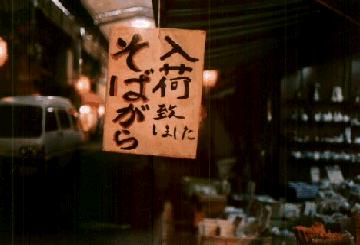 入荷致しました
そばがら